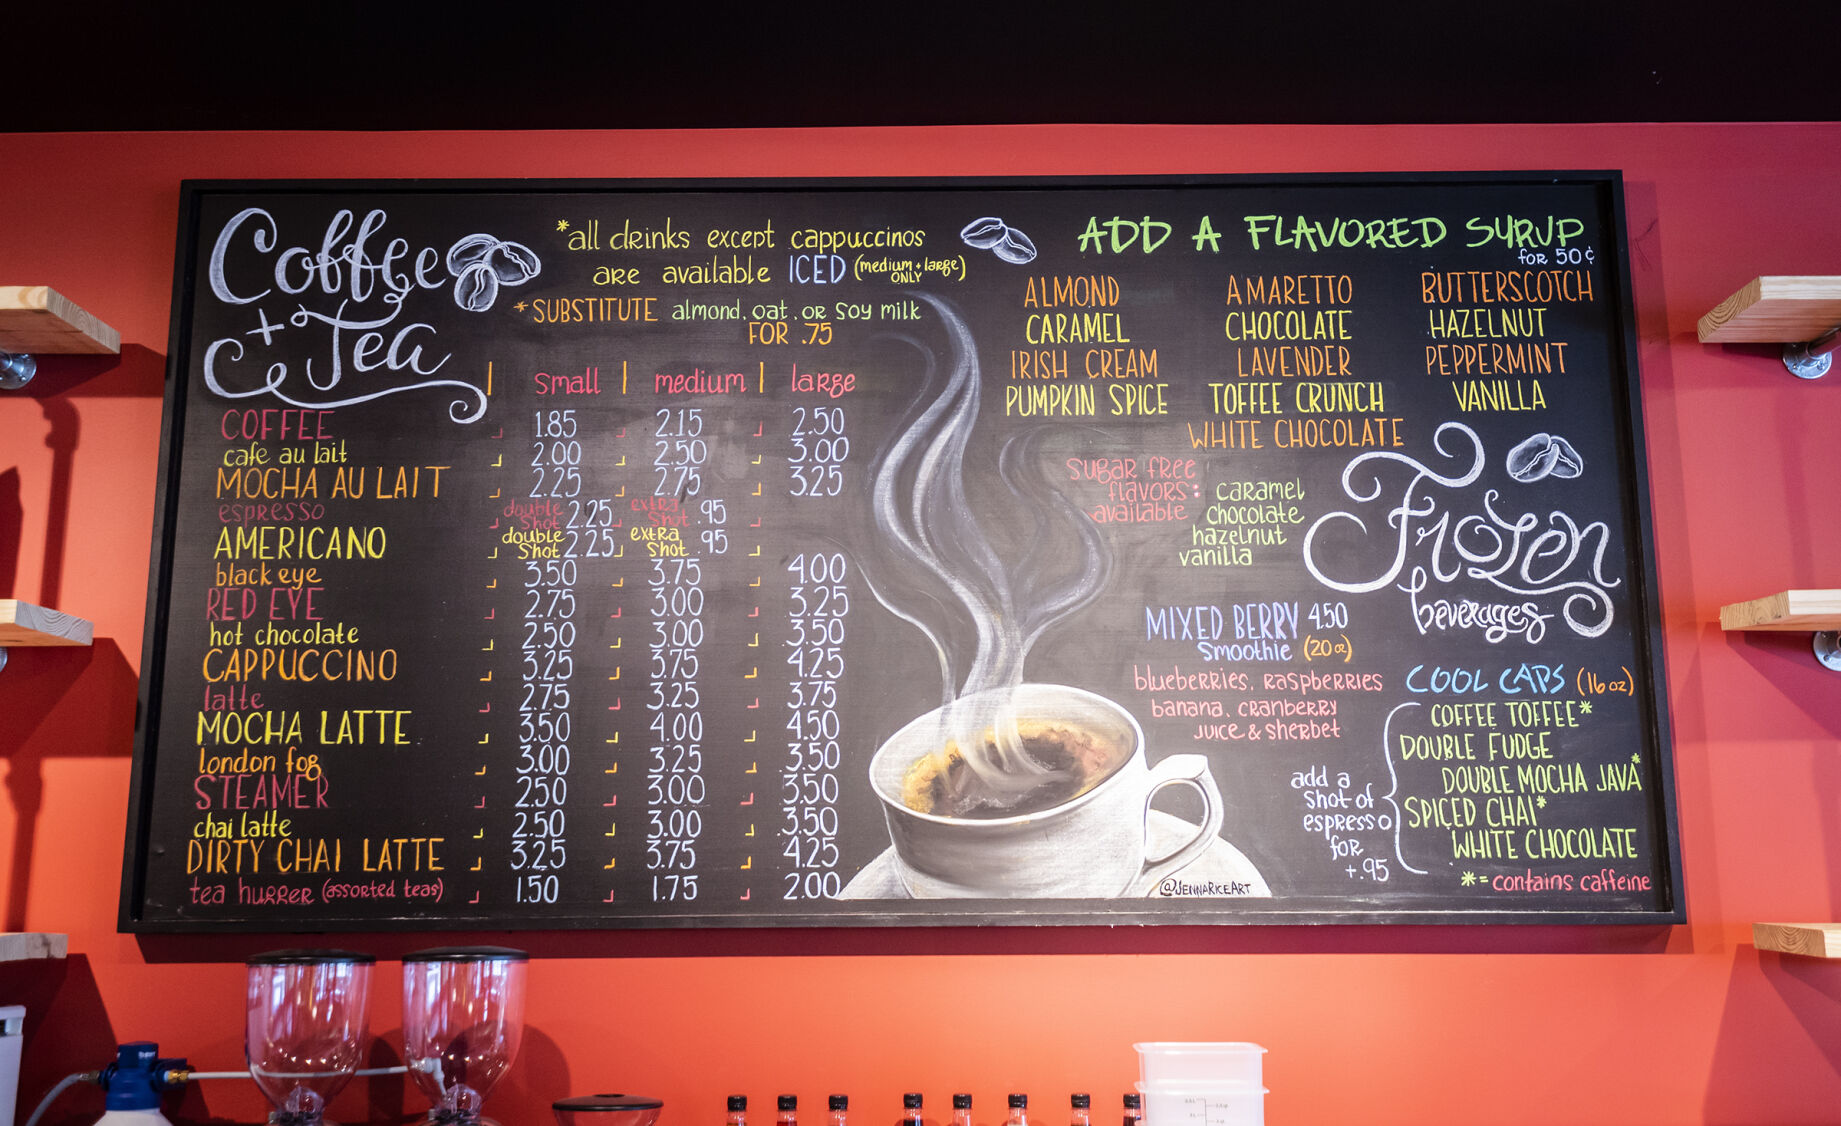 Coffee
+ Tea
*all drinks except cappuccinos
are available ICED (medium + large ONLY)
*SUBSTITUTE almond, oat, or soy milk
FOR .75
small | medium | large
COFFEE 1.85 2.15 2.50
cafe au lait 2.00 2.50 3.00
MOCHA AU LAIT 2.25 2.75 3.25
espresso double shot 2.25 extra shot .95
AMERICANO double shot 2.25 extra shot .95
black eye 3.50 3.75 4.00
RED EYE 2.75 3.00 3.25
hot chocolate 2.50 3.00 3.50
CAPPUCCINO 3.25 3.75 4.25
latte 2.75 3.25 3.75
MOCHA LATTE 3.50 4.00 4.50
london fog 3.00 3.25 3.50
STEAMER 2.50 3.00 3.50
chai latte 2.50 3.00 3.50
DIRTY CHAI LATTE 3.25 3.75 4.25
tea hurrer (assorted teas) 1.50 1.75 2.00
ADD A FLAVORED SYRUP
for 50¢
ALMOND AMARETTO BUTTERSCOTCH
CARAMEL CHOCOLATE HAZELNUT
IRISH CREAM LAVENDER PEPPERMINT
PUMPKIN SPICE TOFFEE CRUNCH VANILLA
WHITE CHOCOLATE
sugar free
flavors:
available
caramel
chocolate
hazelnut
vanilla
Frozen
beverages
MIXED BERRY 4.50
smoothie (20 oz)
blueberries, raspberries
banana, cranberry
juice & sherbet
COOL CAPS (16 oz)
COFFEE TOFFEE*
DOUBLE FUDGE
DOUBLE MOCHA JAVA*
SPICED CHAI*
WHITE CHOCOLATE
add a
shot of
espresso
for
+.95
*= contains caffeine
@JENNARICEART